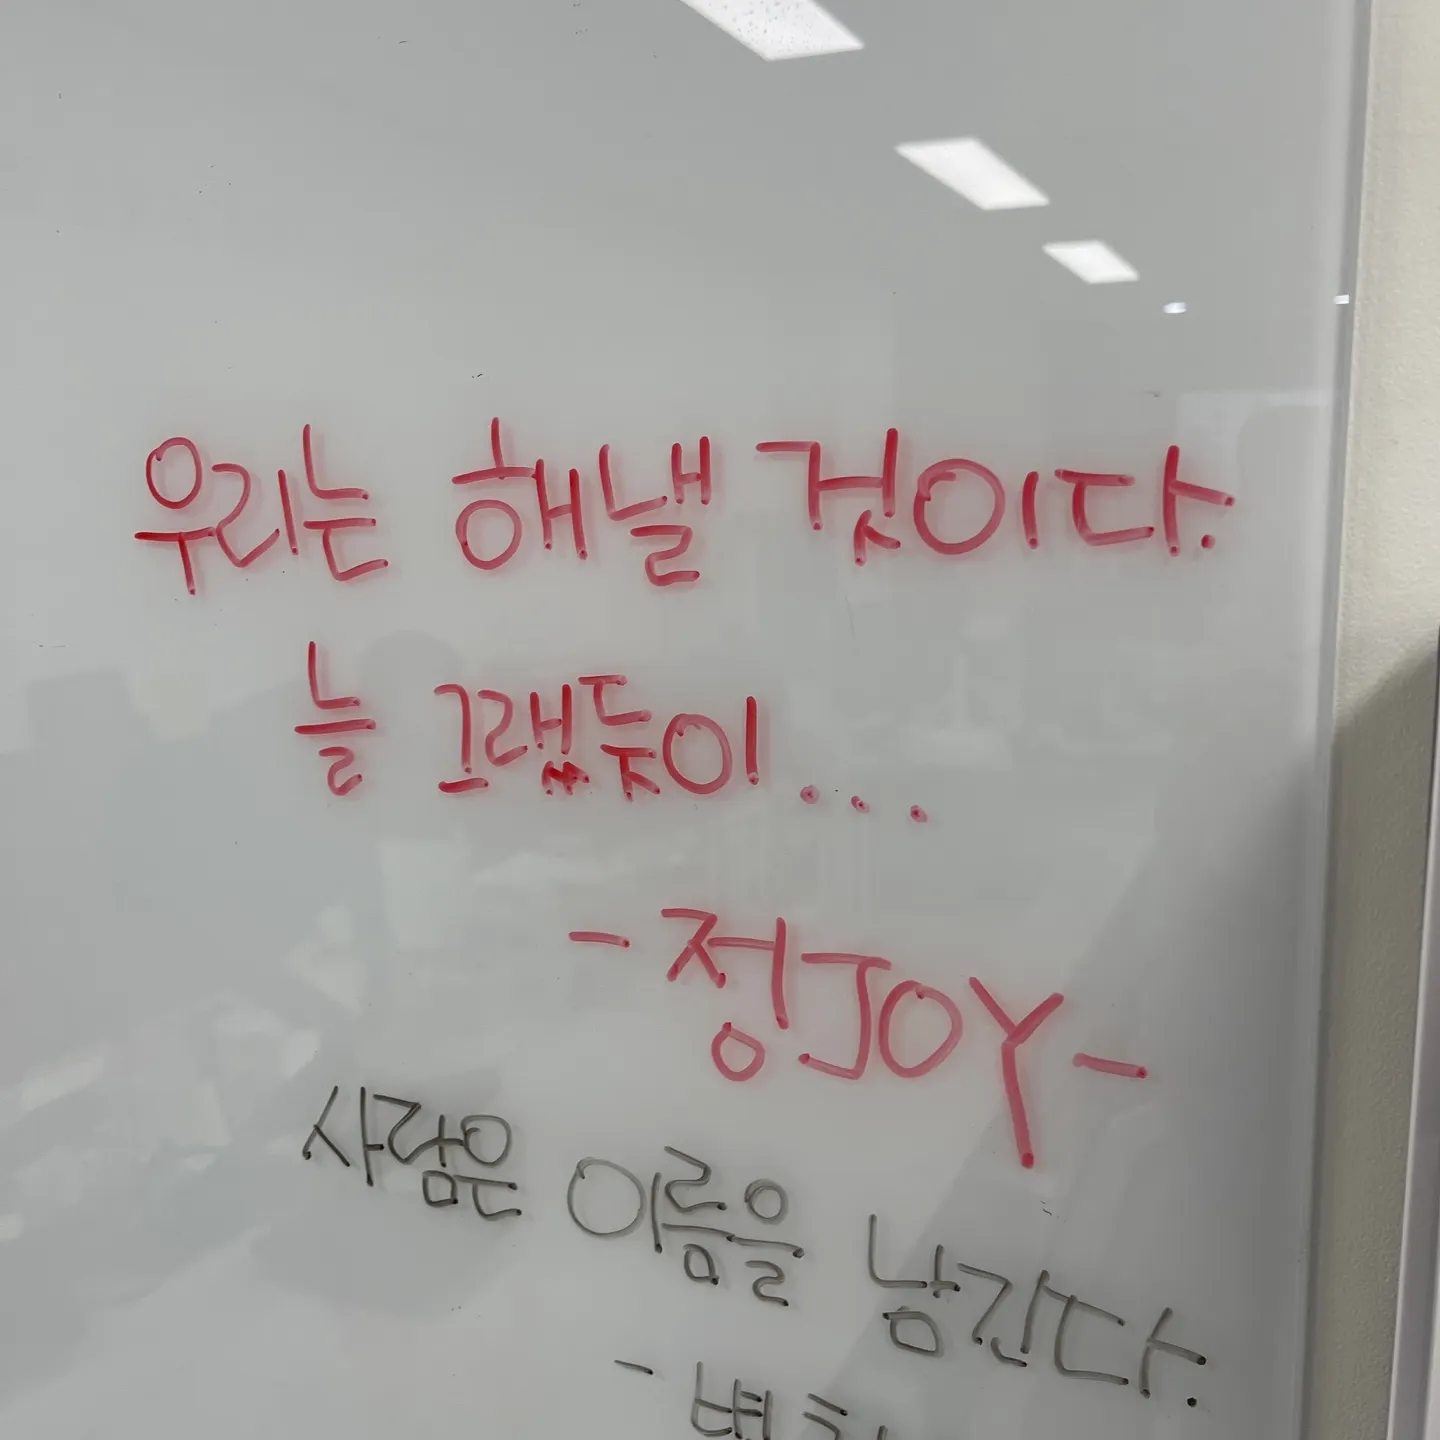 우리는 해낼 것이다.
늘 그랬듯이...
-정JOY-
사람은 이름을 남긴다.
-